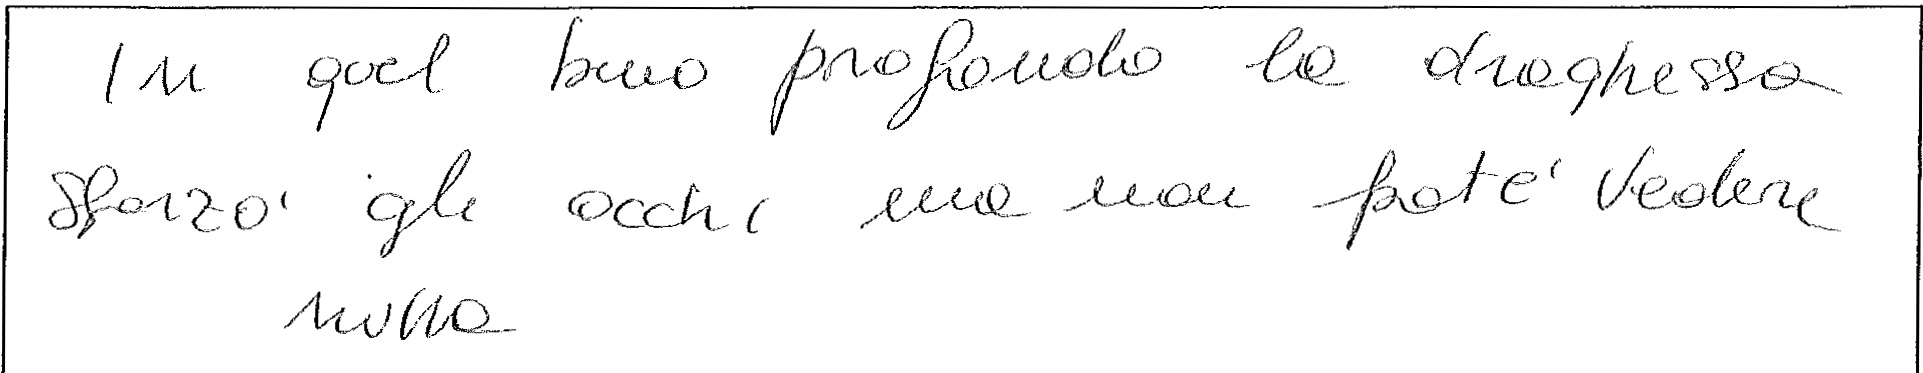 In quel buio profondo la draghessa
sforzò gli occhi, ma non poté vedere
nulla